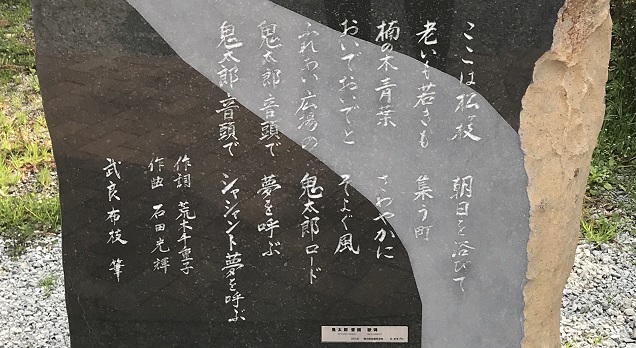 ここは松ヶ枝 朝日を浴びて
老いも若きも 集う町
楠の木青葉 さわやかに
おいでおいでと そよぐ風
ふれあい広場の 鬼太郎ロード
鬼太郎音頭で 夢を呼ぶ
鬼太郎音頭で シャンシャント夢を呼ぶ
作詞 荒木千重子
作曲 石田光輝
武良布枝 筆
鬼太郎音頭 歌碑